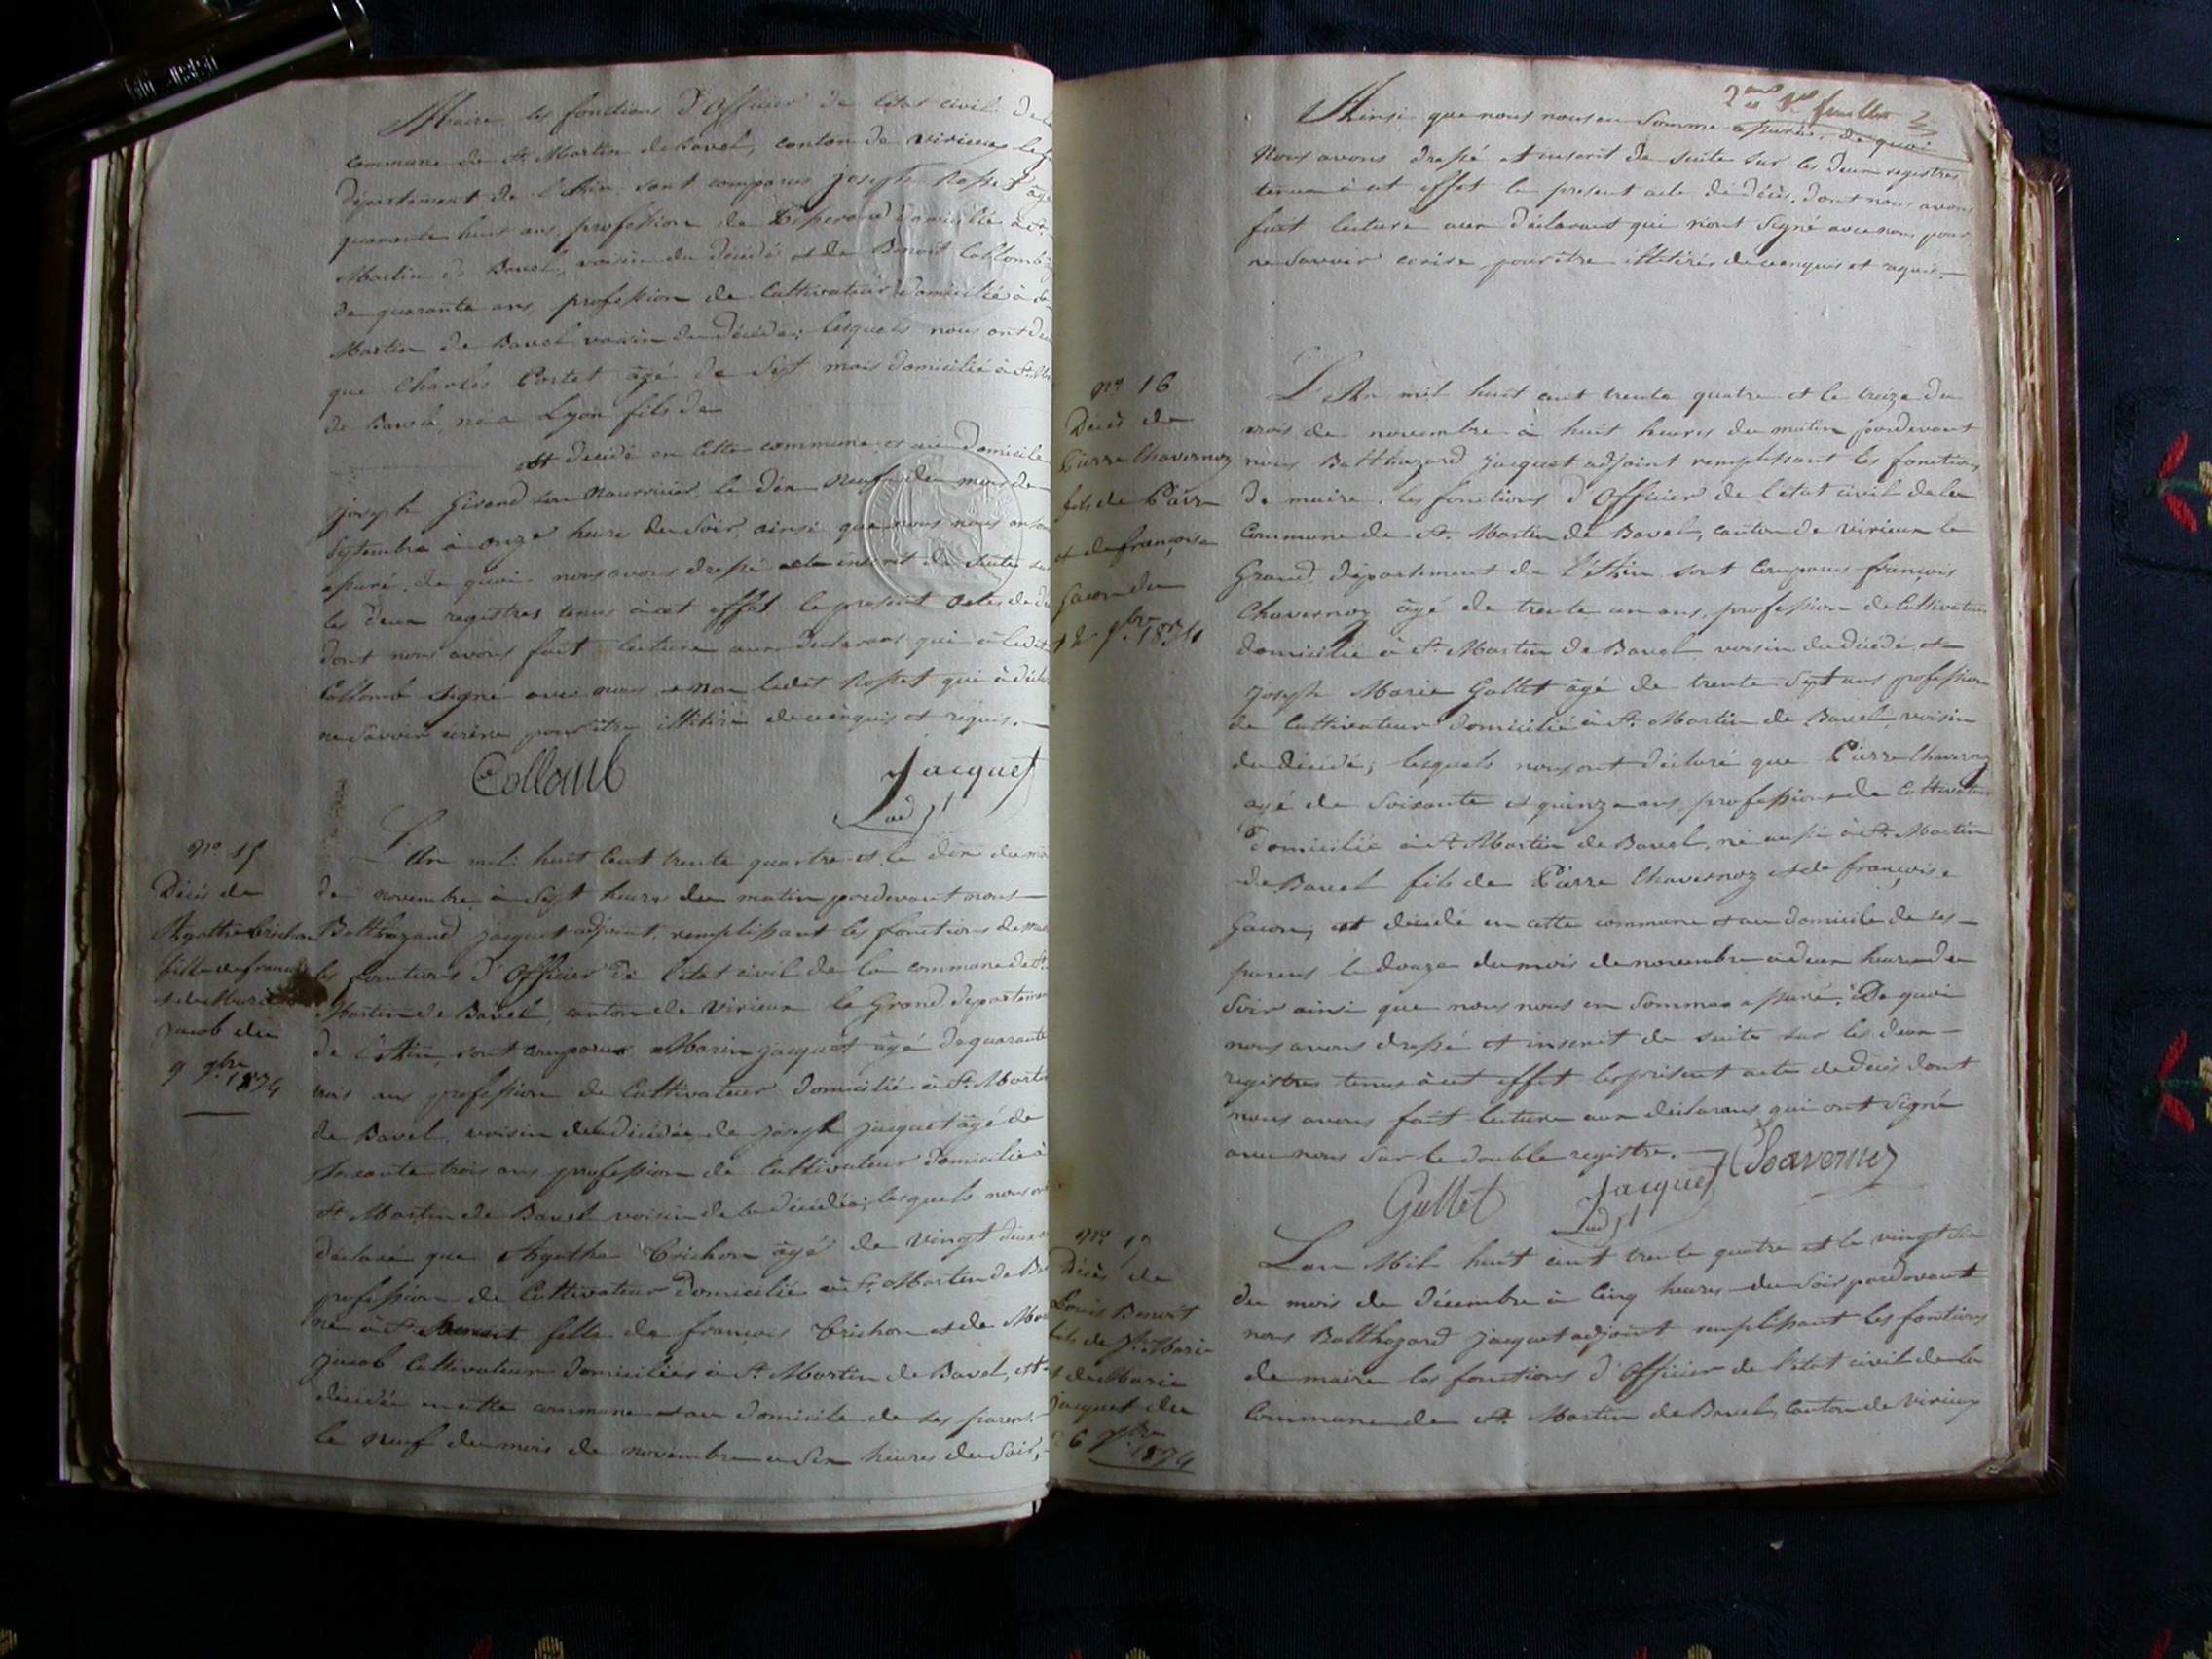 Maire les fonctions d'Officier de l'état civil de la
commune de St Martin de Bavel, canton de virieux le
département de l'Ain sont comparus joseph Rosset âgé
quarante huit ans, profession de domicilié à St
Martin de Bavel, voisin du décédé et de Benoit Collomb
de quarante ans, profession de Cultivateur domicilié à St
Martin de Bavel voisin du décédé; lesquels nous ont
que Charles Portet âgé de Sept mois domicilié à St
de Bavel, né a Lyon fils de
est décédé en cette commune et au domicile
joseph Girand son nourricier le dix neuf du mois de
Septembre à onze heures du Soir, ainsi que nous nous
assuré, de quoi nous avons dressé et inscrit de suite
les deux registres tenus à cet effet le présent acte de
dont nous avons fait lecture aux déclarans qui à ledit
Collomb signé avec nous et non ledit Rosset qui à
ne Savoir écrire pour être illitéré de ce enquis et requis.
Collomb
Jacquet
adjt
nº 15
Décès de
Agathe brichon
fille de franc
et de
jacob du
9 9bre 1834
L'An mil huit Cent trente quatre et le dix du
de novembre à Sept heures du matin pardevant nous
Balthazard jacquet adjoint, remplissant les fonctions de
les fonctions d'Officier de l'état civil de la commune de St
Martin de Bavel, canton de Virieux le Grand département
de l'Ain, sont comparus Marin jacquet âgé de quarante
trois ans profession de Cultivateur domicilié à St Martin
de Bavel, voisin de la décédée, de joseph jacquet âgé de
trois ans profession de Cultivateur domicilié à
St Martin de Bavel voisin de la décédée; lesquels nous ont
déclaré que Agathe brichon âgé de vingt
profession de Cultivateur domicilié à St Martin de
né à St fille de françois brichon et de
jacob Cultivateurs domiciliés à St Martin de Bavel, est
décédée en cette commune et au domicile de ses parens
le neuf du mois de novembre a Six heures du Soir,
2me feuillet
Ainsi que nous nous en Somme assurés, de quoi
Nous avons dressé et inscrit de suite sur les deux registres
tenus à cet effet le present acte de décès, dont nous avons
fait lecture aux déclarant qui n'ont Signé avec nous pour
ne Savoir écrire, pour être illitérés de ce enquis et requis.
nº 16
Décès de
Pierre Chavernoz
fils de Pierre
et de françoise
Gacon du
12 9bre 1834
L'An mil huit cent trente quatre et le treize du
mois de novembre à huit heures du matin pardevant
nous Balthazard jacquet adjoint remplissant les fonctions
de maire, les fonctions d'Officier de l'état civil de la
Commune de St. Martin de Bavel, canton de virieux le
Grand, département de l'Ain sont Comparus françois
Chavernoz âgé de trente un ans, profession de Cultivateur
domicilié à St Martin de Bavel voisin du décédé, et
joseph Marie Gallet âgé de trente Sept ans profession
de Cultivateur domicilié à St. Martin de Bavel, voisin
du décédé; lesquels nous ont déclaré que Pierre Chavernoz
agé de Soixante et quinze ans profession de Cultivateur
domicilié à St Martin de Bavel, né aussi à St. Martin
de Bavel fils de Pierre Chavernoz et de françoise
Gacon, est décédé en cette commune et au domicile de ses
parens le douze du mois de novembre à deux heures du
Soir ainsi que nous nous en Sommes assuré. De quoi
nous avons dressé et inscrit de suite sur les deux
registres tenus à cet effet le présent acte de décès dont
nous avons fait lecture aux déclarans qui ont Signé
avec nous Sur le double registre.
Chavernoz
Gallet
Jacquet
adjt
nº 17
Décès de
Louis Benoit
fils de jh Marie
et de Marie
jacquet du
26 Xbre
1834
L'an Mil huit cent trente quatre et le vingt
du mois de décembre à Cinq heures du Soir pardevant
nous Balthazard jacquet adjoint remplissant les fonctions
de maire les fonctions d'Officier de l'état civil de la
Commune de St. Martin de Bavel, Canton de Virieux